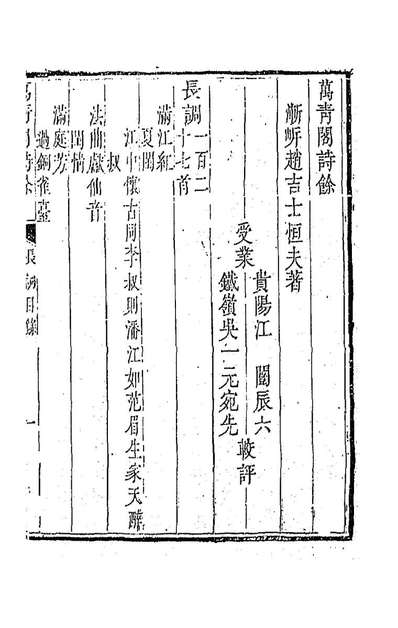 萬青閣詩餘
漸岍趙吉士恒夫著
受業
貴陽江闓辰六
鐵嶺吳一元宛先
較評
長調一百二十七首
滿江紅
夏閨
江中懷古同李叔則潘江如范眉生家天醉叔
法曲獻仙音
閨情
滿庭芳
過銅雀臺
長調目錄
一